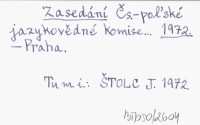 Zasedání Čs-poľské
jazykovědné komise... 1972.
— Praha.
Tu m. i.: ŠTOLC J. 1972.